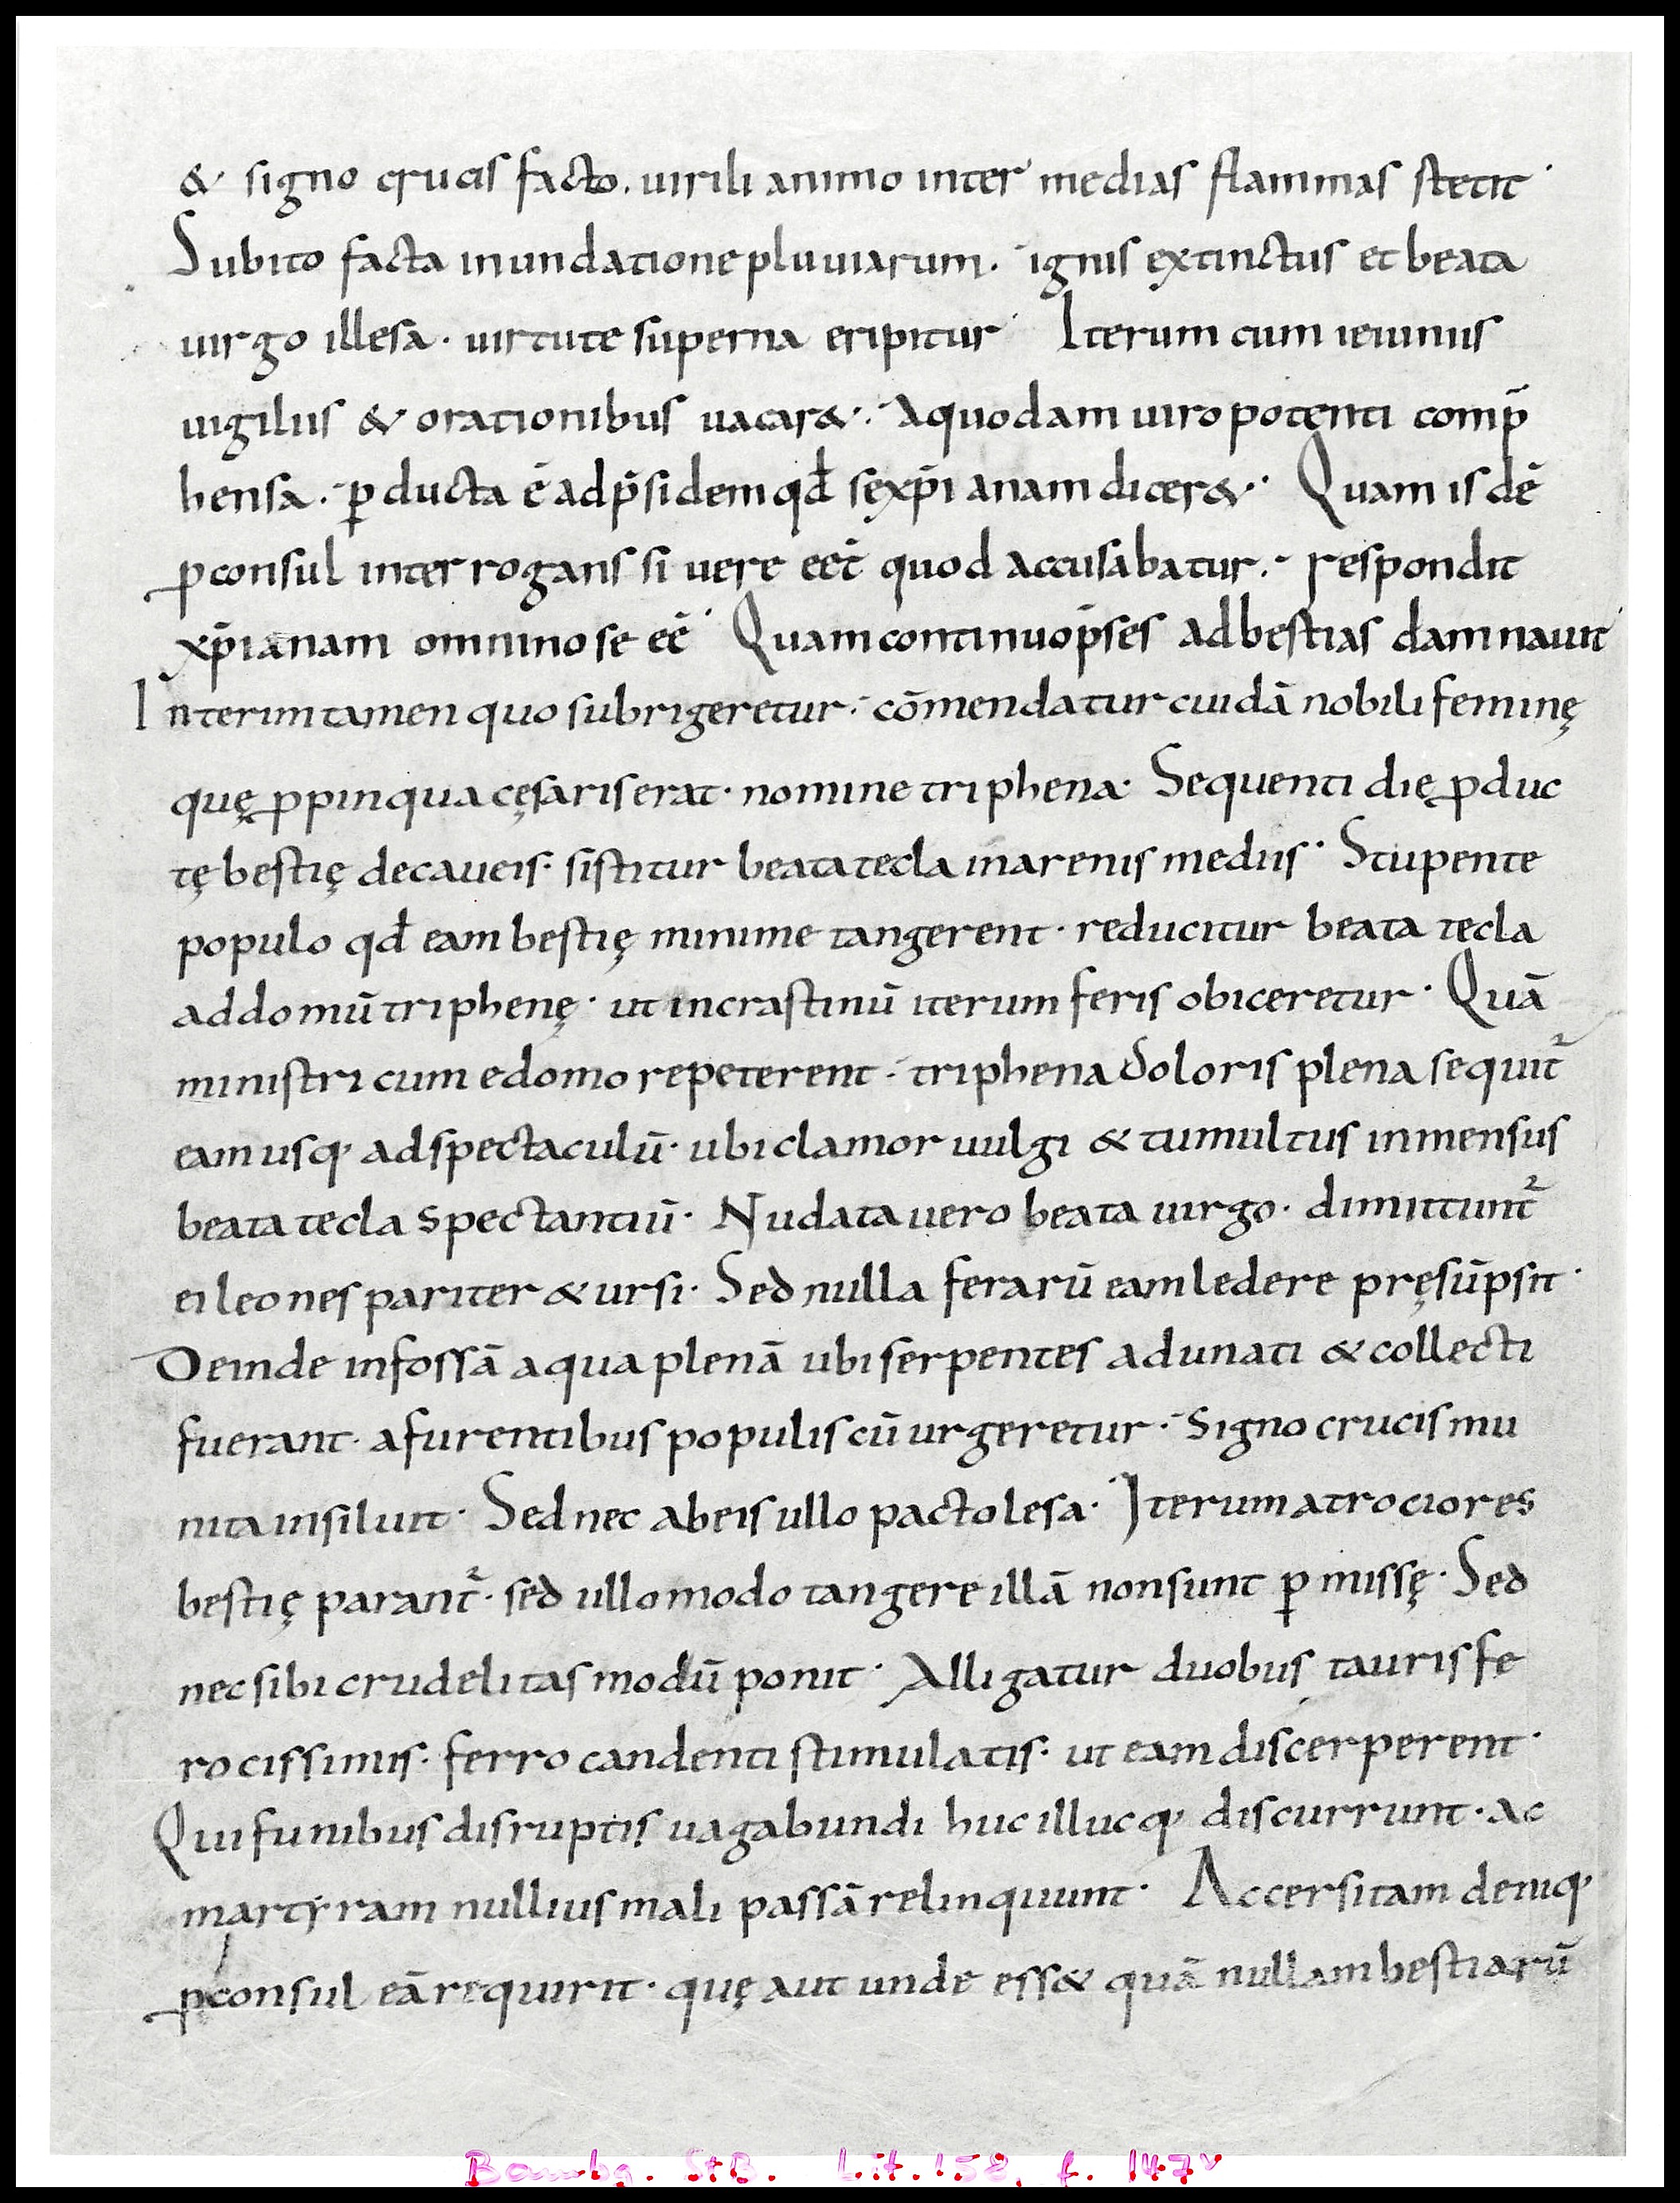 & signo crucis facto. uirili animo inter medias flammas stetit·
Subito facta inundatione pluuiarum. ignis extinctus et beata
uirgo illesa· uirtute superna eripitur· Iterum cum ieiuniis
uigiliis & orationibus uacar&· A quodam uiro potenti comp̄
hensa· ꝑducta ē ad p̄sidem qđ se xp̄ianam dicer&· Quam is dē
ꝓconsul interrogans si uere eēt quod accusabatur· respondit
xp̄ianam omnino se eē· Quam continuo p̄ses ad bestias damnauit
Interim tamen quo subrigeretur· cōmendatur cuidā nobili feminę
quę ꝓpinqua cęsaris erat· nomine triphena· Sequenti die ꝓduc
tę bestię de caueis· sistitur beata tecla in arenis mediis· Stupente
populo qđ eam bestię minime tangerent· reducitur beata tecla
ad domū triphenę· ut in crastinū iterum feris obiceretur· Quā
ministri cum e domo repeterent· triphena doloris plena sequit᷑
eam usq· ad spectaculū· ubi clamor uulgi & tumultus inmensus
beata tecla spectantiū· Nudata uero beata uirgo· dimittunt᷑
ei leones pariter & ursi· Sed nulla ferarū eam ledere pręsūpsit·
Deinde in fossā aqua plenā ubi serpentes adunati & collecti
fuerant· a furentibus populis cū urgeretur· signo crucis mu
nita insiluit· Sed nec ab eis ullo pacto lesa· Iterum atrociores
bestię parant᷑· sed ullo modo tangere illā non sunt ꝑmissę· Sed
nec sibi crudelitas modū ponit· Alligatur duobus tauris fe
rocissimis· ferro candenti stimulatis· ut eam discerperent·
Qui funibus disruptis uagabundi huc illucq· discurrunt· ac
martyram nullius mali passā relinquunt· Accersitam deniq·
ꝓconsul eā requirit· quę aut unde ess& quā nullam bestiarū
Bambg. StB. Lit. 158, f. 147v